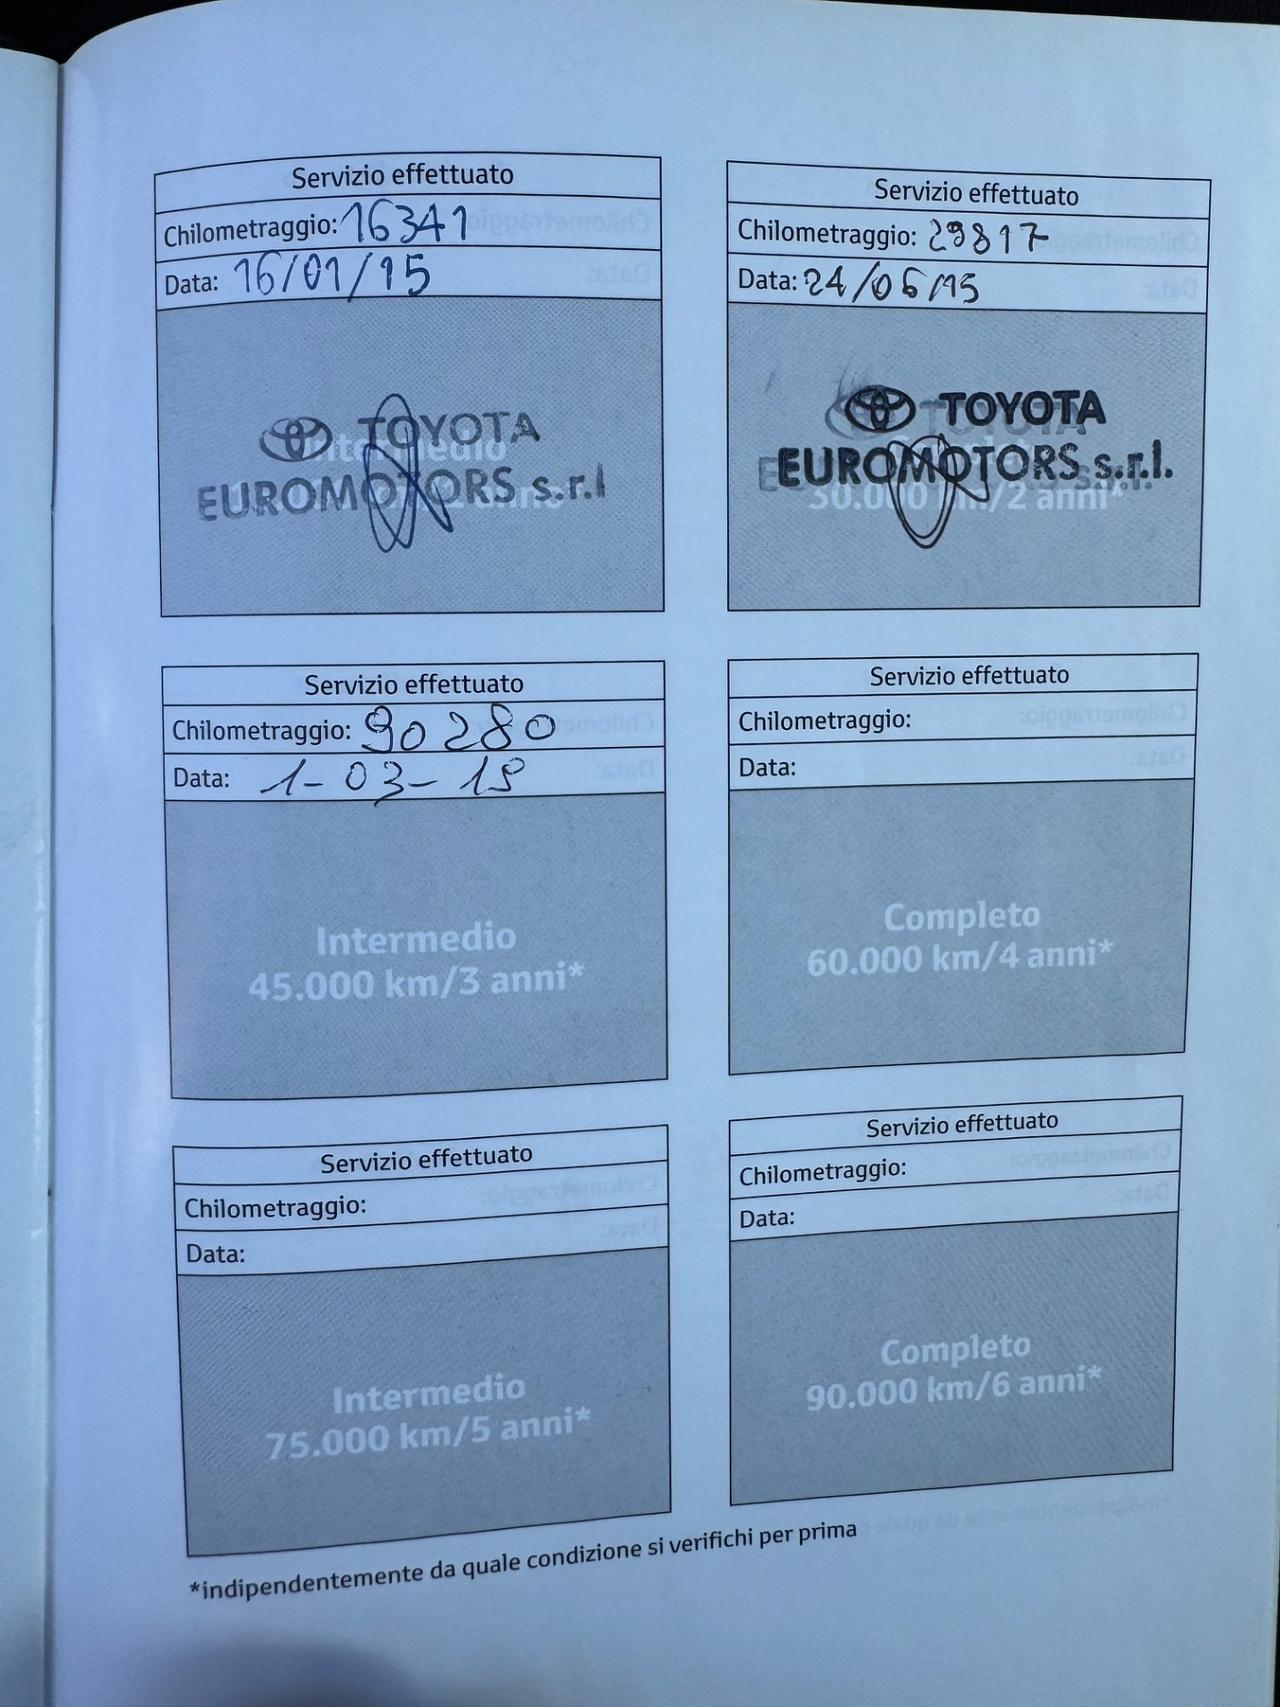 Servizio effettuato
Chilometraggio: 16341
Data: 16/01/15
Intermedio
TOYOTA
EUROMOTORS s.r.l
Servizio effettuato
Chilometraggio: 29817
Data: 24/06/15
TOYOTA
EUROMOTORS s.r.l.
30.000 km/2 anni*
Servizio effettuato
Chilometraggio: 90280
Data: 1-03-18
Intermedio
45.000 km/3 anni*
Servizio effettuato
Chilometraggio:
Data:
Completo
60.000 km/4 anni*
Servizio effettuato
Chilometraggio:
Data:
Intermedio
75.000 km/5 anni*
Servizio effettuato
Chilometraggio:
Data:
Completo
90.000 km/6 anni*
*indipendentemente da quale condizione si verifichi per prima